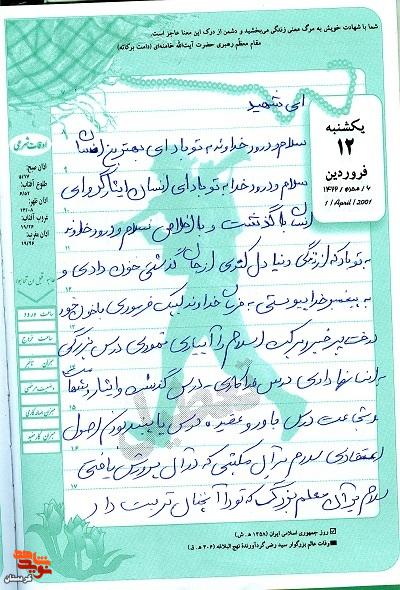 شما با شهادت خویش به مرگ معنی زندگی می‌بخشید و دشمن از درک این معنا عاجز است.
مقام معظم رهبری حضرت آیت‌الله خامنه‌ای (دامت برکاته)
یکشنبه
۱۲
فروردین
1 / April / 2001
اوقات شرعی
اذان صبح:
طلوع آفتاب:
اذان ظهر:
غروب آفتاب:
اذان مغرب:
ساعت ورود
ساعت خروج
میزان تأخیر
میزان کارکرد
ای شهید
سلام و درود خداوند به تو باد ای بهترین انسان
سلام و درود خدا به تو باد ای انسان ایثارگر و ای
انسان با گذشت و با اخلاص سلام و درود خداوند
به تو باد که از زندگی دنیا دل کندی از جان گذشتی خون دادی و
به پیغمبر خدا پیوستی به فرمان خداوند لبیک گفتی و با خون خود
درخت پر خیر و برکت اسلام را آبیاری نمودی درس بزرگی
به انسانها دادی درس فداکاری درس گذشت و ایثار و شهامت
و شجاعت درس باور و عقیده درس پایبند بودن به اصول
اعتقادی سلام بر آن مکتبی که در آن پرورش یافتی
سلام بر آن معلم بزرگ که تو را آنچنان تربیت داد
تعطیل
روز جمهوری اسلامی ایران (۱۳۵۸ ه‍. ش)
وفات عالم بزرگوار سید رضی گردآورندهٔ نهج البلاغه (۴۰۶ ه‍. ق)
نوید شاهد
کردستان